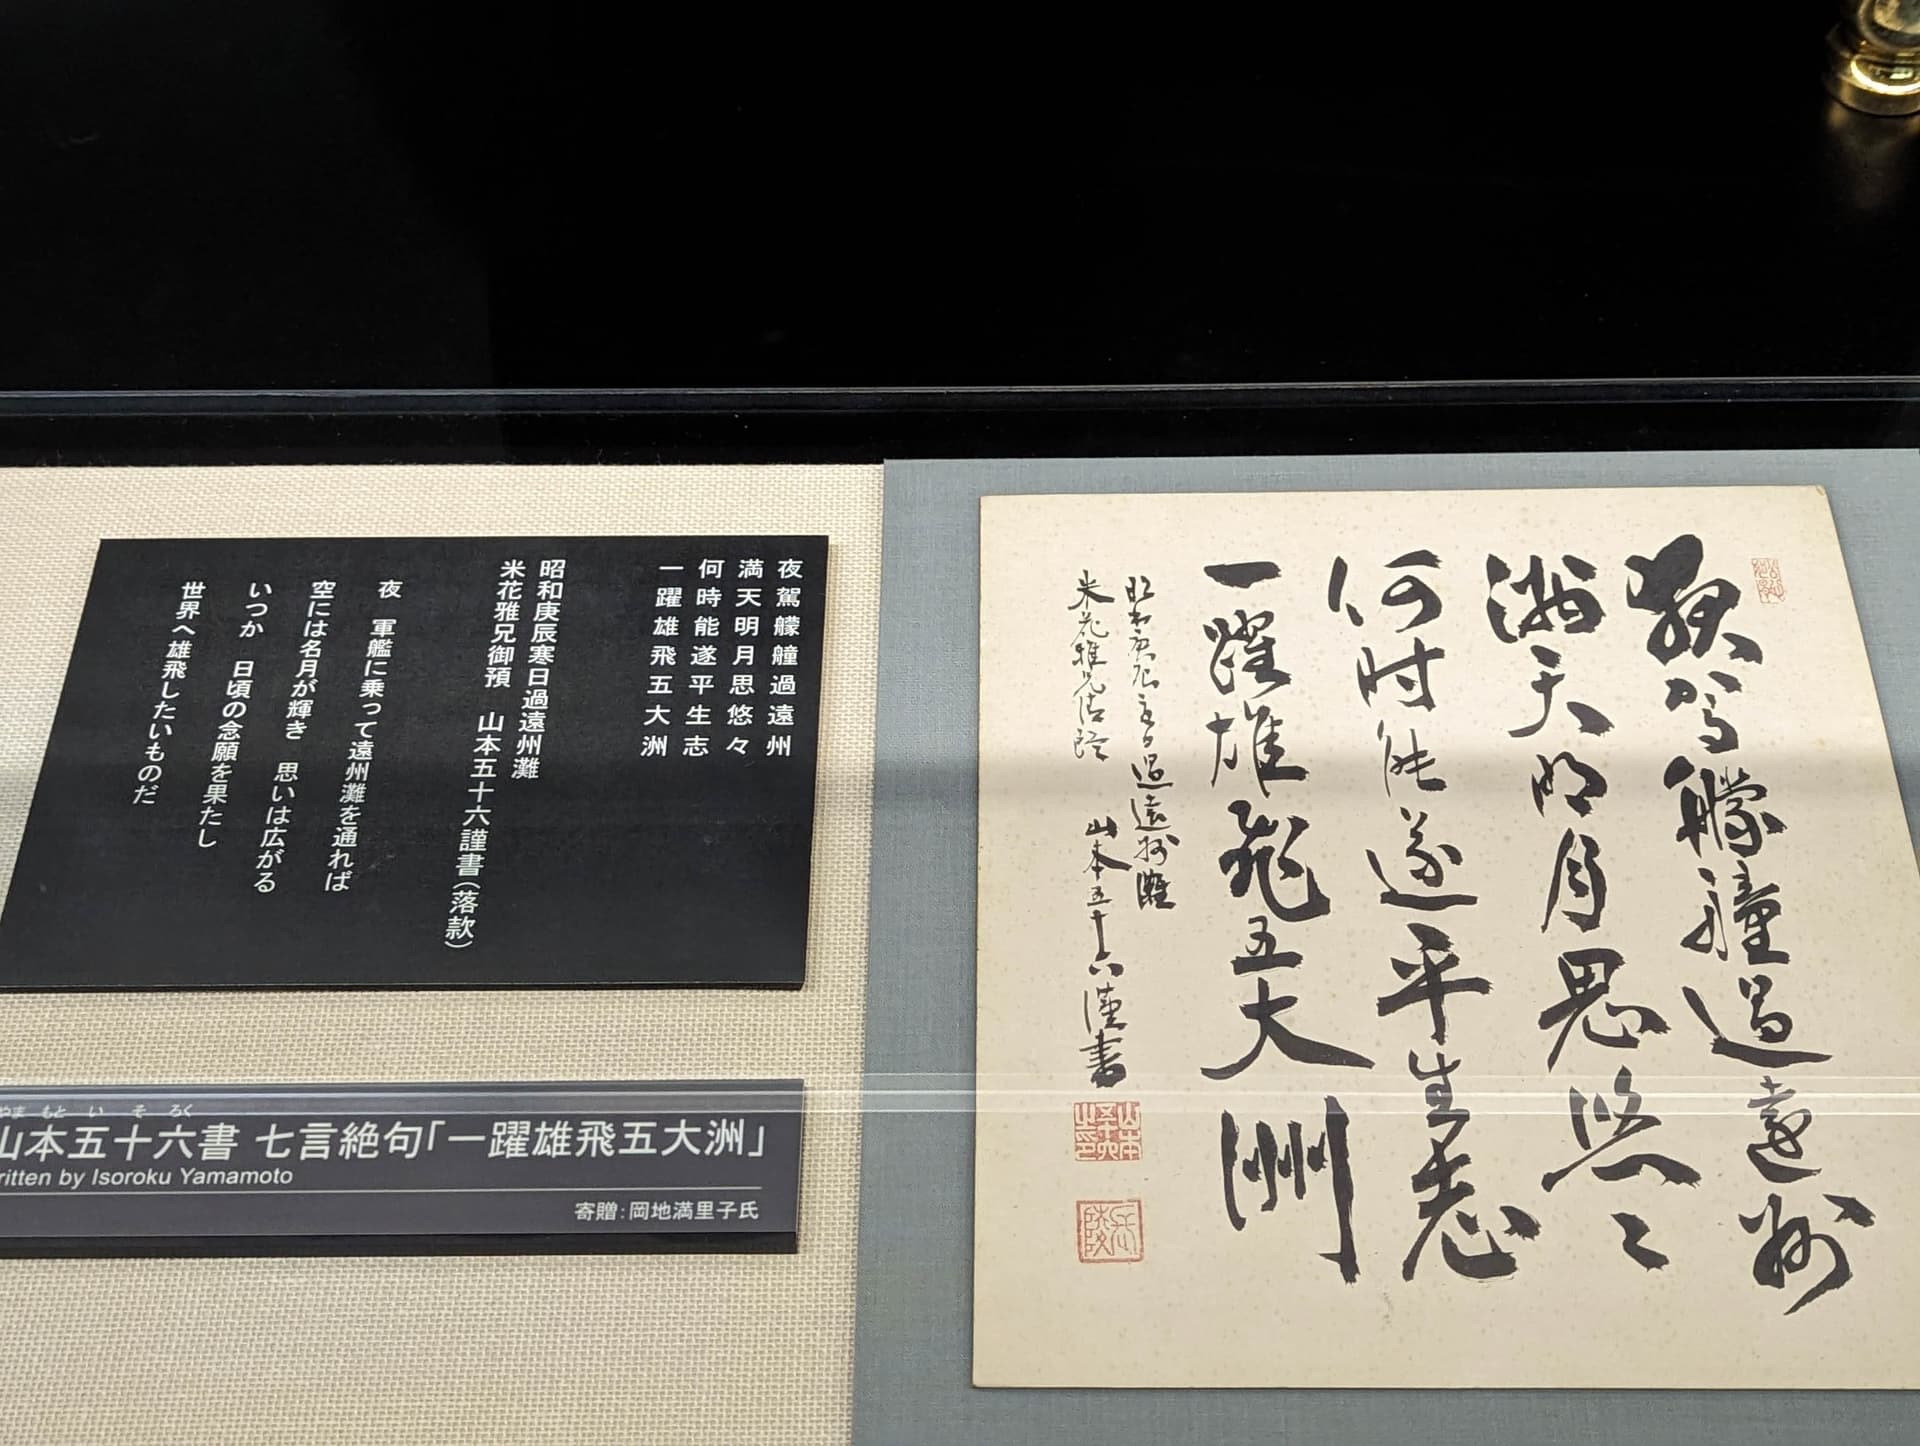 夜駕艨艟過遠州
満天明月思悠々
何時能遂平生志
一躍雄飛五大洲
昭和庚辰寒日過遠州灘
米花雅兄御預 山本五十六謹書(落款)
夜 軍艦に乗って遠州灘を通れば
空には名月が輝き 思いは広がる
いつか 日頃の念願を果たし
世界へ雄飛したいものだ
やま もと い そ ろく
山本五十六書 七言絶句「一躍雄飛五大洲」
ritten by Isoroku Yamamoto
寄贈:岡地満里子氏
夜駕艨艟過遠州
満天明月思悠々
何時能遂平生志
一躍雄飛五大洲
昭和庚辰寒日過遠州灘
米花雅兄御預 山本五十六謹書
山本五十六之印